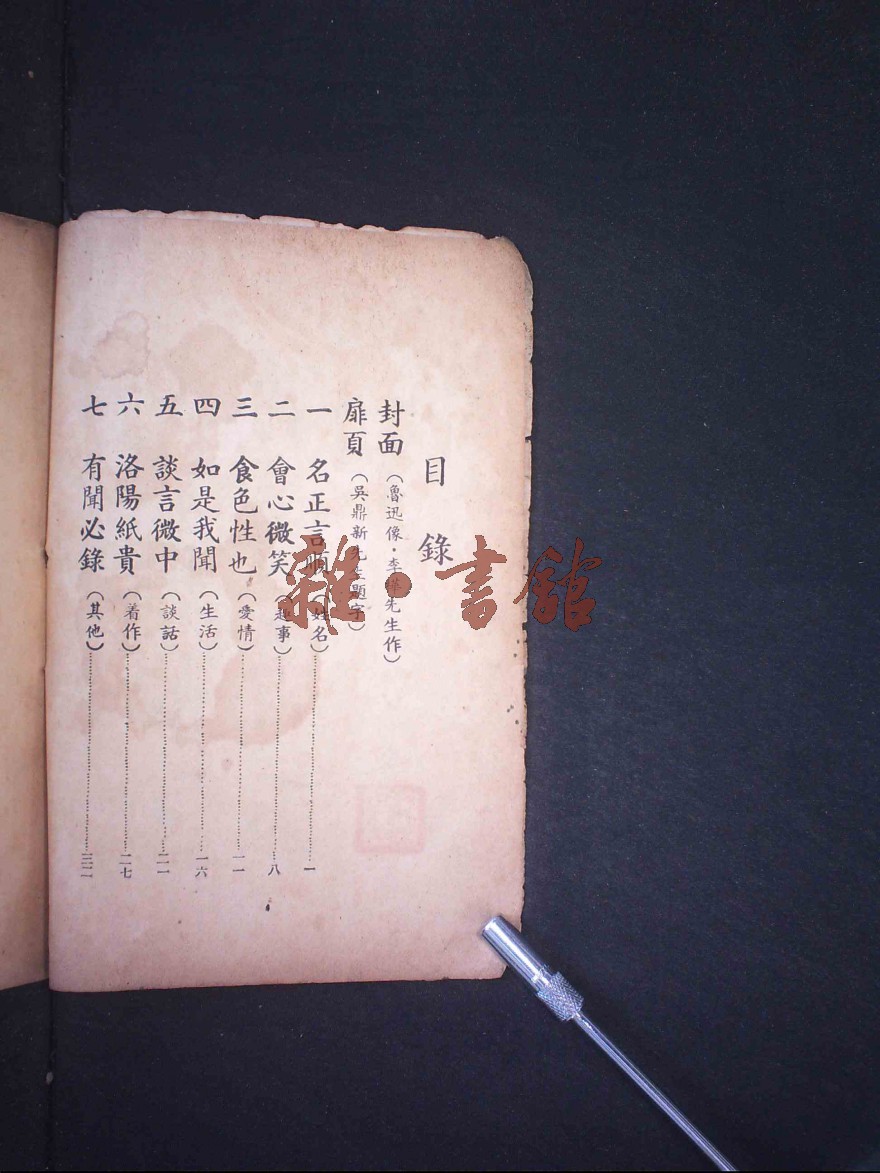 目錄
封面（魯迅像・李樺先生作）
扉頁（吳鼎新先生題字）
一 名正言順（姓名）一
二 會心微笑（趣事）八
三 食色性也（愛情）一一
四 如是我聞（生活）一六
五 談言微中（談話）二一
六 洛陽紙貴（着作）二七
七 有聞必錄（其他）三二
雜・書館